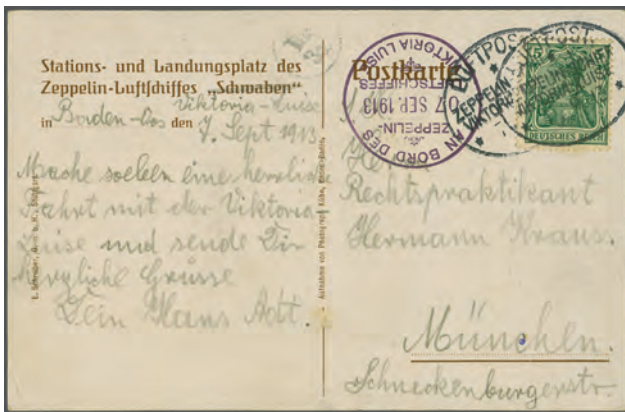 Stations- und Landungsplatz des
Zeppelin-Luftschiffes „Schwaben“
Viktoria-Luise
in Baden-Oos den 7. Sept 1913.
Mache soeben eine herrliche
Fahrt mit der Viktoria
Luise und sende Dir
herzliche Grüsse
Dein Hans Adt.
Aufnahme von Photograph Kühn, Baden-Baden.
Postkarte
AN BORD DES
ZEPPELIN-
07 SEP. 1913
LUFTSCHIFFES
VIKTORIA LUISE
LUFTPOST
ZEPPELIN
VIKTORIA
LUFTPOST
ZEPPELINSCHIFF
VIKTORIA LUISE
5
DEUTSCHES REICH
Herrn
Rechtspraktikant
Hermann Krauss.
München.
Schneckenburgerstr.